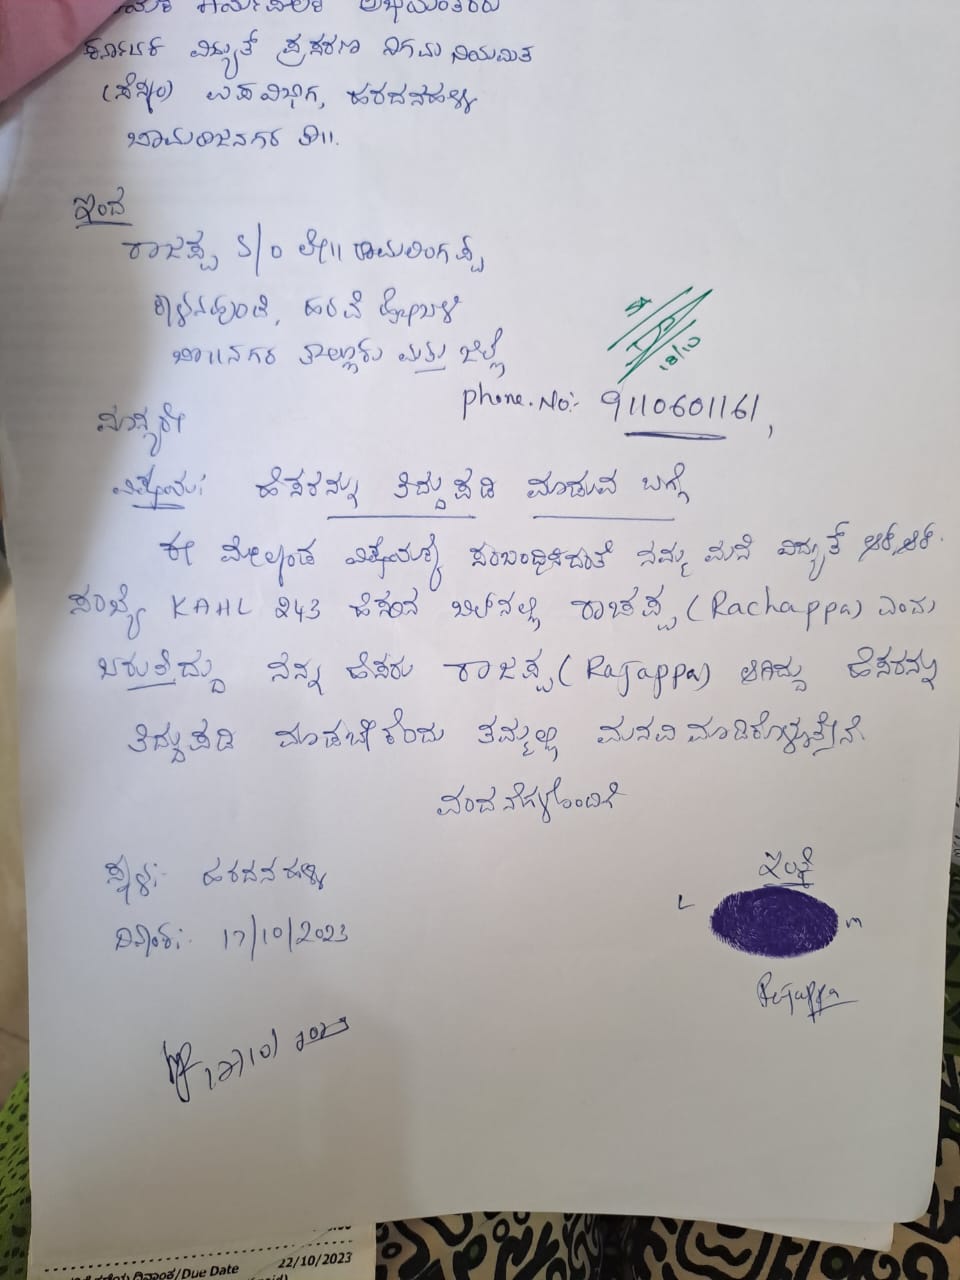 ಕಾರ್ಯಪಾಲಕ ಅಭಿಯಂತರರು
ಕರ್ನಾಟಕ ವಿದ್ಯುತ್ ಪ್ರಸರಣ ನಿಗಮ ನಿಯಮಿತ
(ಸೆಸ್ಕಂ) ಉಪವಿಭಾಗ, ಹರದನಹಳ್ಳಿ
ಚಾಮರಾಜನಗರ ತಾ||.
ಇಂದ
ರಾಜಪ್ಪ S/O ಲೇ|| ರಾಮಲಿಂಗಪ್ಪ
ಹರವೆ ಹೋಬಳಿ
ಚಾ||ನಗರ ತಾಲ್ಲೂಕು ಮತ್ತು ಜಿಲ್ಲೆ
18/10
phone.No:- 9110601161,
ಮಾನ್ಯರೇ
ವಿಷಯ: ಹೆಸರನ್ನು ತಿದ್ದುಪಡಿ ಮಾಡುವ ಬಗ್ಗೆ
ಈ ಮೇಲ್ಕಂಡ ವಿಷಯಕ್ಕೆ ಸಂಬಂಧಿಸಿದಂತೆ ನಮ್ಮ ಮನೆ ವಿದ್ಯುತ್ ಆರ್.ಆರ್.
ಸಂಖ್ಯೆ KAHL 243 ಹೆಸರಿನ ಬಿಲ್‌ನಲ್ಲಿ ರಾಚಪ್ಪ (Rachappa) ಎಂದು
ಬರುತ್ತಿದ್ದು ನನ್ನ ಹೆಸರು ರಾಜಪ್ಪ (Rajappa) ಆಗಿದ್ದು ಹೆಸರನ್ನು
ತಿದ್ದುಪಡಿ ಮಾಡಬೇಕೆಂದು ತಮ್ಮಲ್ಲಿ ಮನವಿ ಮಾಡಿಕೊಳ್ಳುತ್ತೇನೆ.
ವಂದನೆಗಳೊಂದಿಗೆ
ಸ್ಥಳ:- ಹರದನಹಳ್ಳಿ
ದಿನಾಂಕ:- 17/10/2023
ಇಂತಿ
L m
Rajappa
17/10/2023
ದಿನಾಂಕ/Due Date 22/10/2023